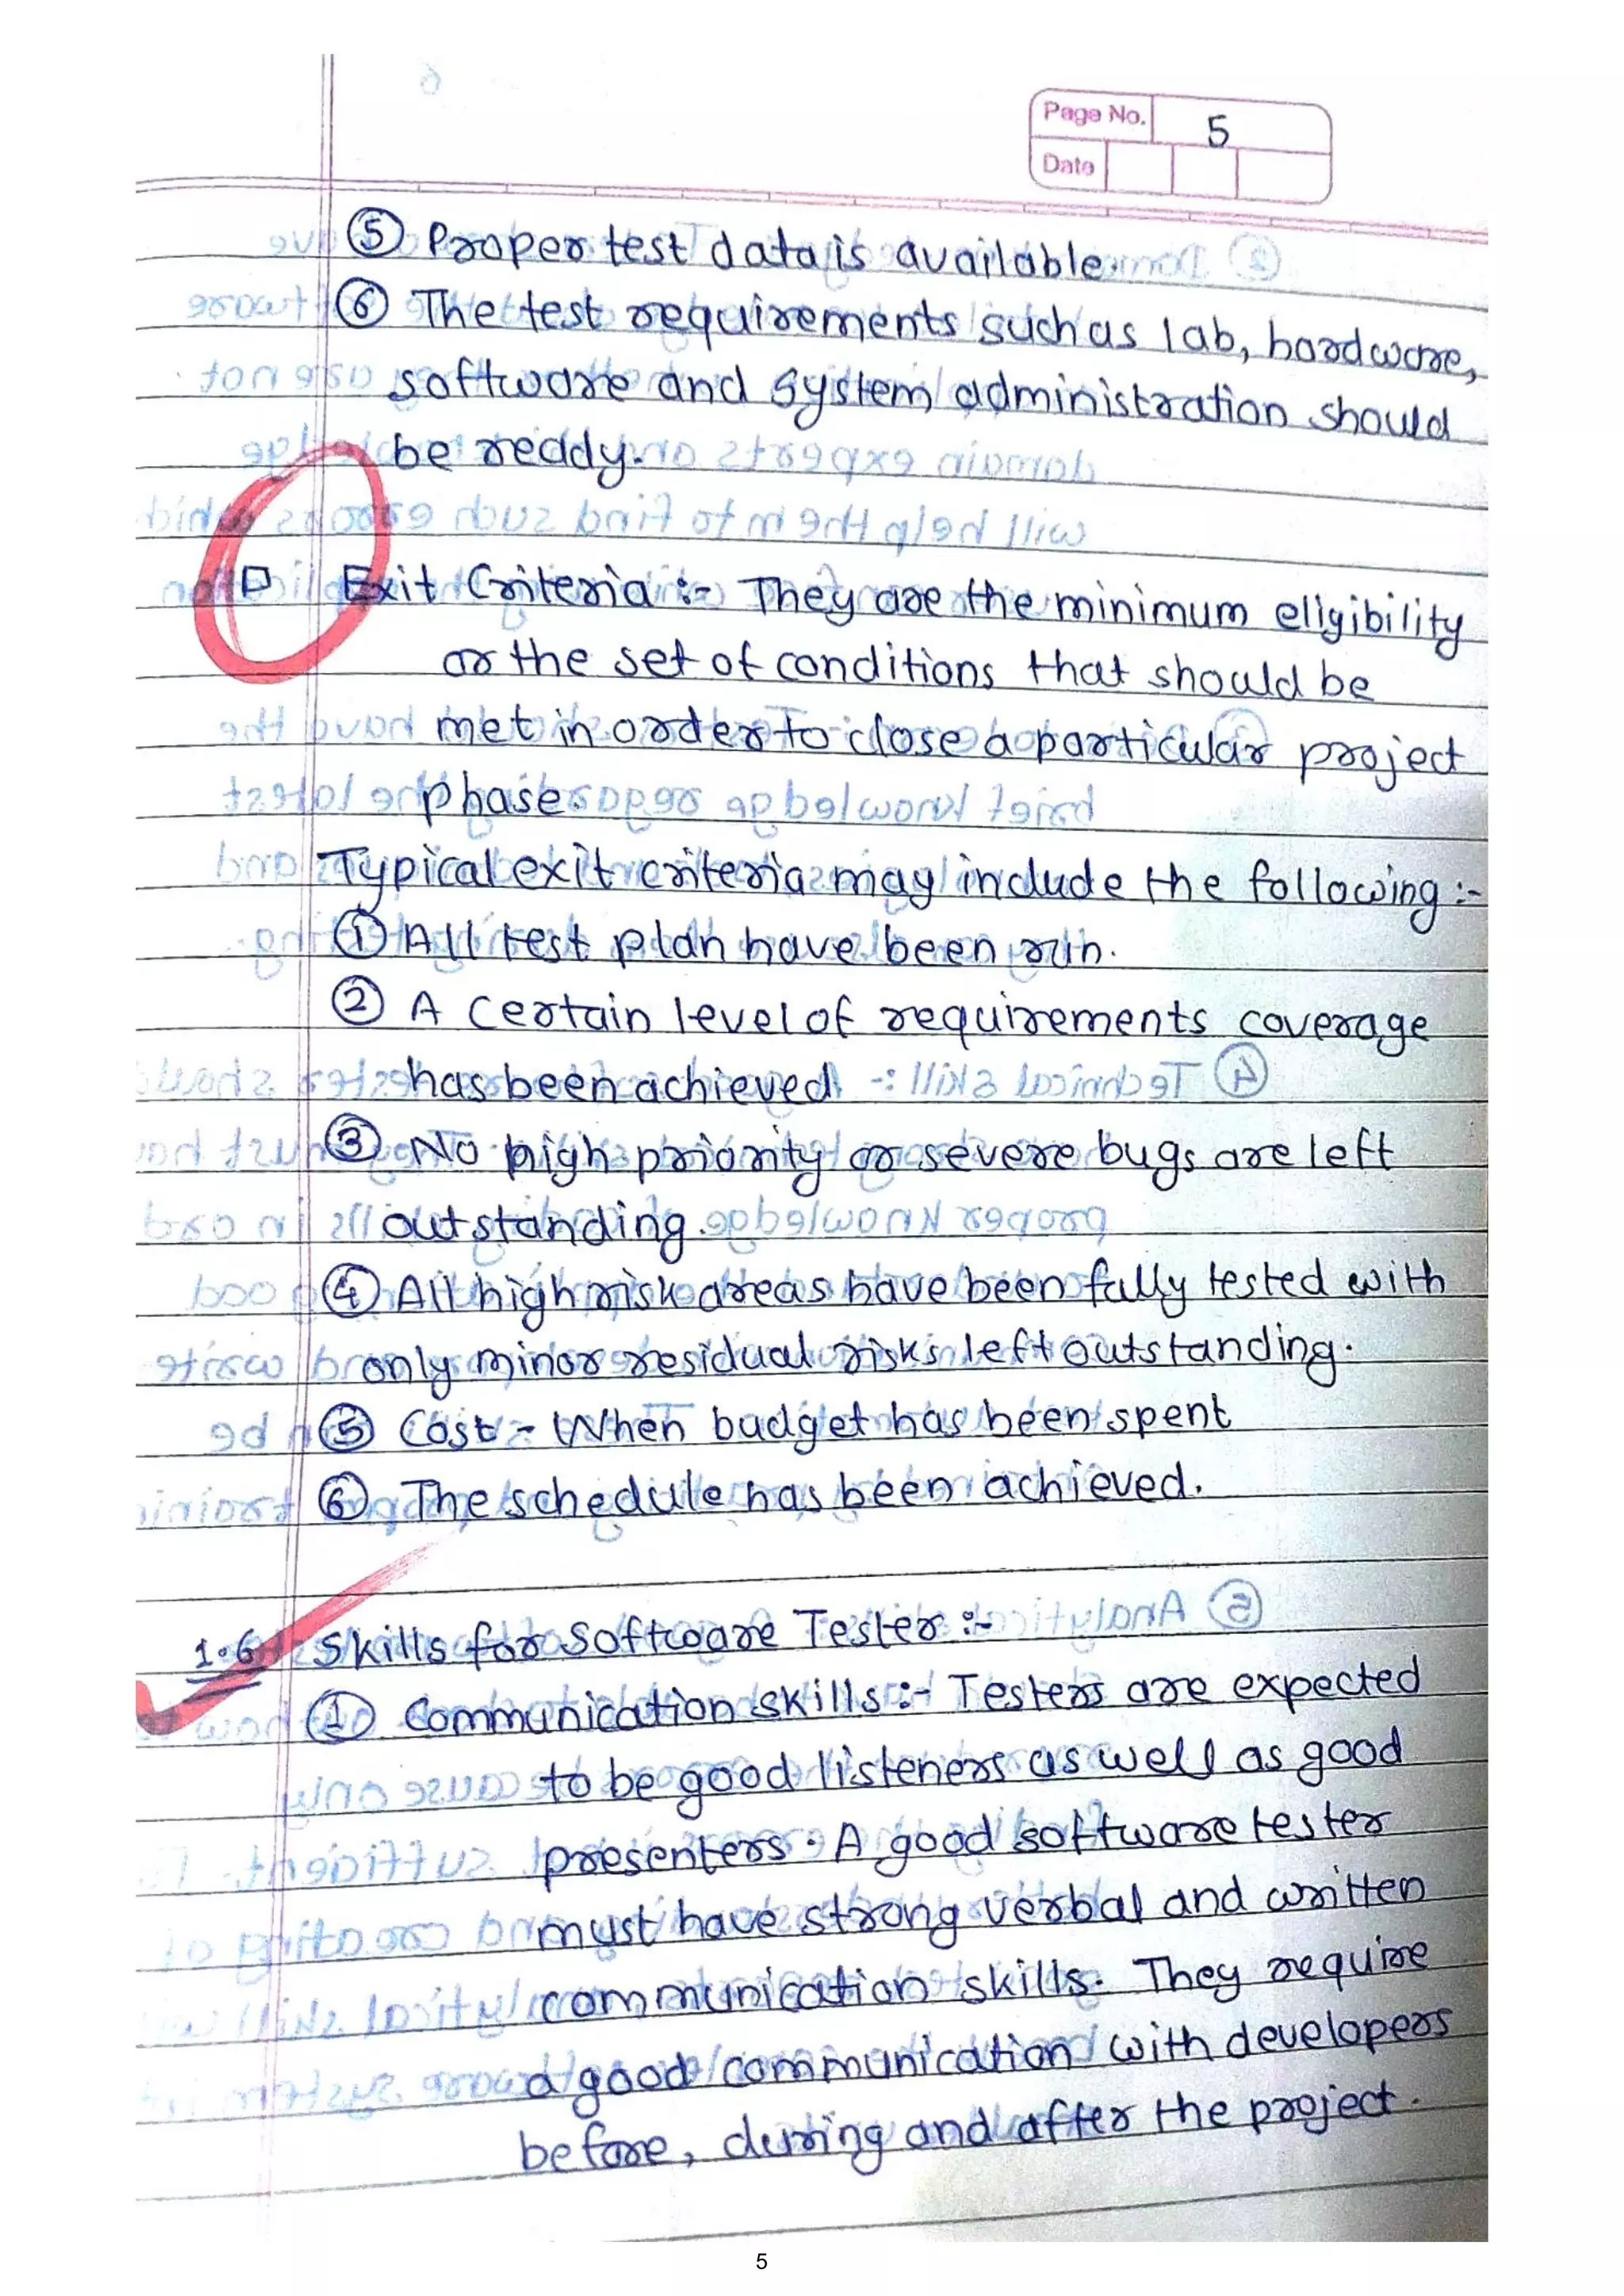 Page No. 5
Date
⑤ Proper test data is available.
⑥ The test requirements such as lab, hardware,
software and system administration should
be reddy.
Exit Criteria :- They are the minimum eligibility
or the set of conditions that should be
met in order to close a particular project
phase.
Typical exit criteria may include the following :-
① All test plan have been run.
② A Certain level of requirements coverage
has been achieved
③ No high priority or severe bugs are left
outstanding.
④ All high risk areas have been fully tested with
only minor residual risks left outstanding.
⑤ Cost - When budget has been spent
⑥ The schedule has been achieved.
1.6 Skills for Software Tester :-
① Communication skills :- Testers are expected
to be good listeners as well as good
presenters. A good software tester
must have strong verbal and written
communication skills. They require
a good communication with developers
before, during and after the project.
5